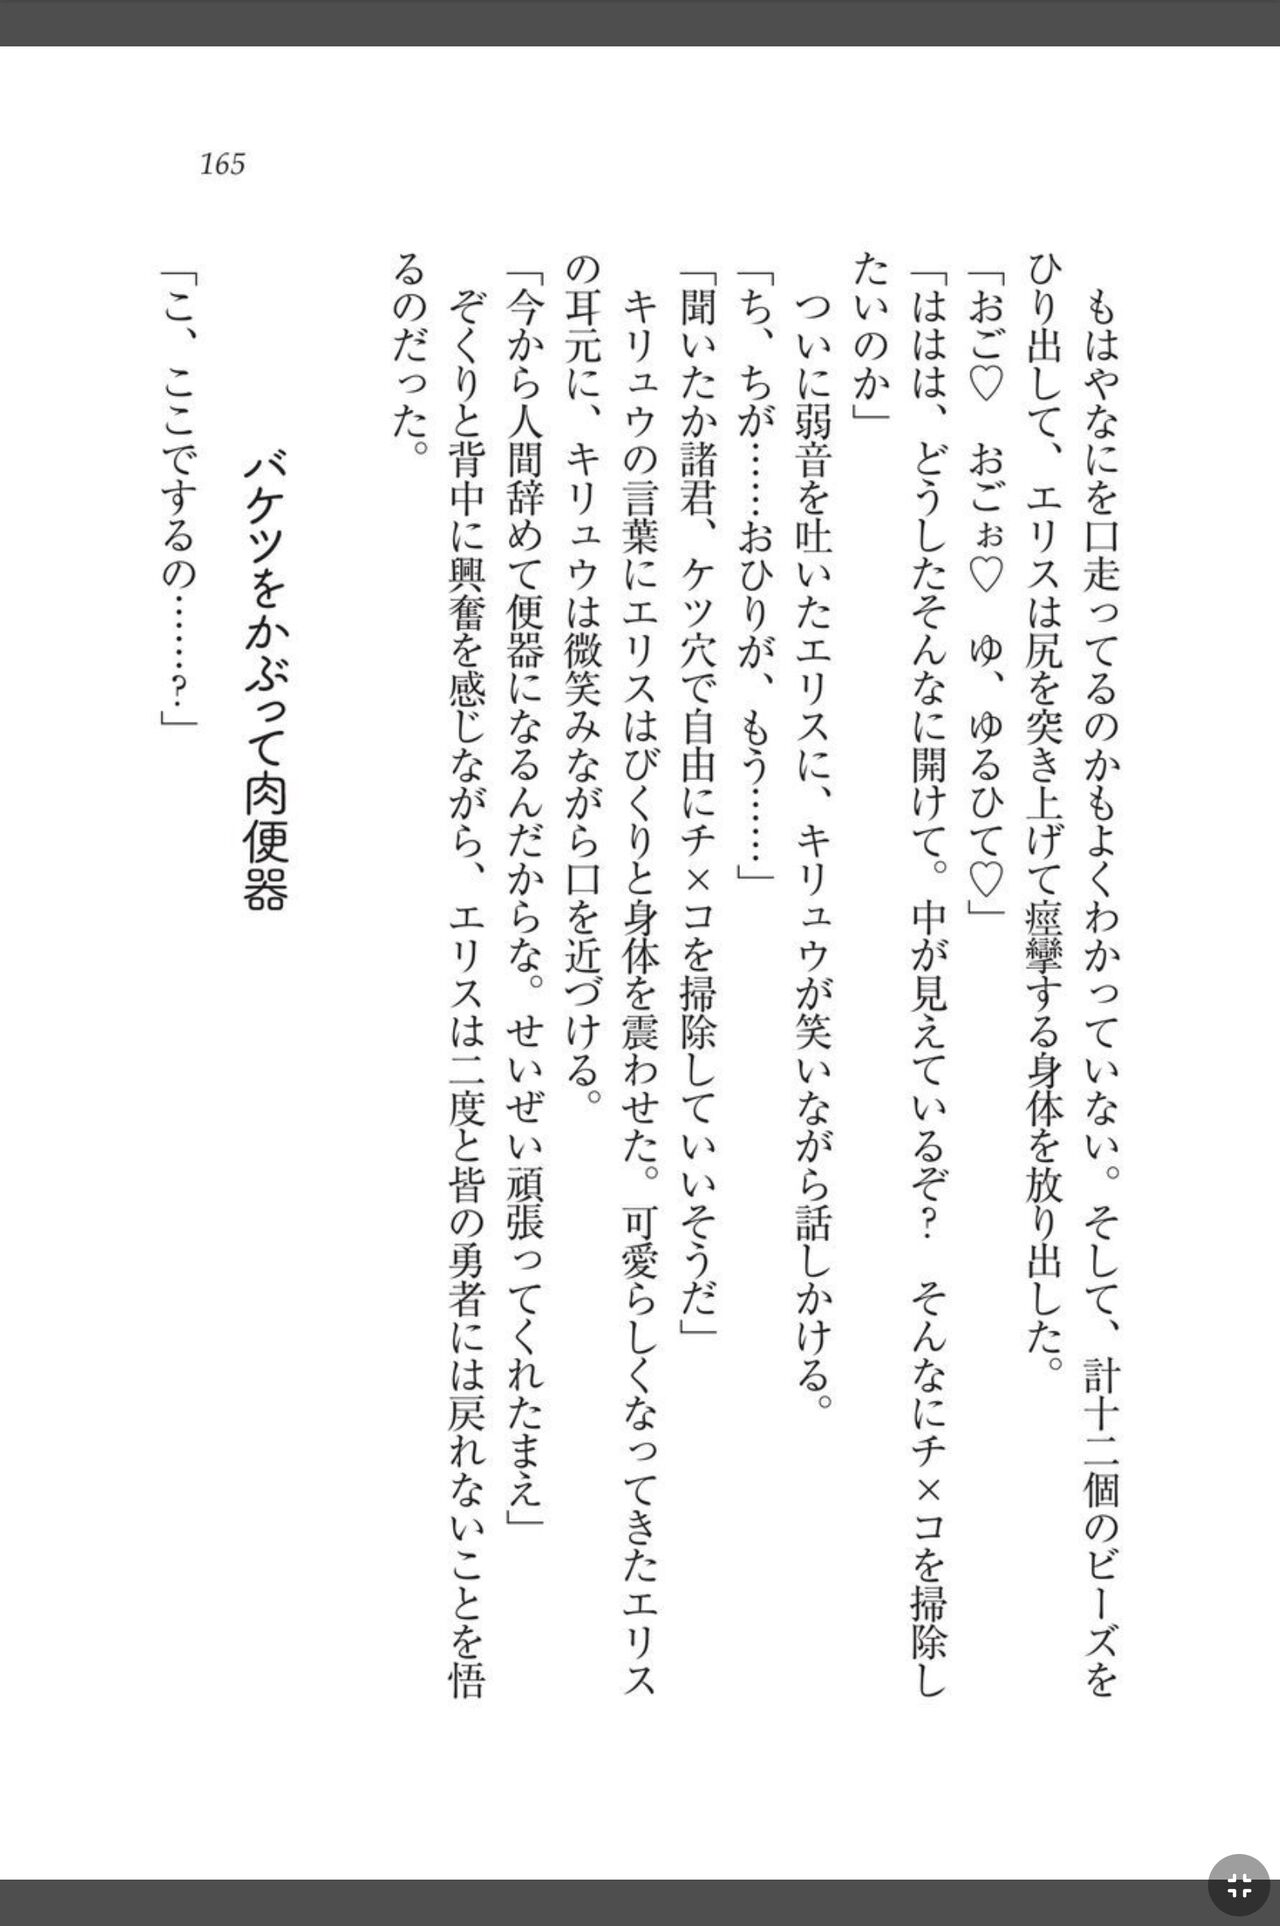 165
もはやなにを口走ってるのかもよくわかっていない。そして、計十二個のビーズを
ひり出して、エリスは尻を突き上げて痙攣する身体を放り出した。
「おご♡　おごぉ♡　ゆ、ゆるひて♡」
「ははは、どうしたそんなに開けて。中が見えているぞ？　そんなにチ×コを掃除し
たいのか」
ついに弱音を吐いたエリスに、キリュウが笑いながら話しかける。
「ち、ちが……おひりが、もう……」
「聞いたか諸君、ケツ穴で自由にチ×コを掃除していいそうだ」
キリュウの言葉にエリスはびくりと身体を震わせた。可愛らしくなってきたエリス
の耳元に、キリュウは微笑みながら口を近づける。
「今から人間辞めて便器になるんだからな。せいぜい頑張ってくれたまえ」
ぞくりと背中に興奮を感じながら、エリスは二度と皆の勇者には戻れないことを悟
るのだった。
バケツをかぶって肉便器
「こ、ここでするの……？」